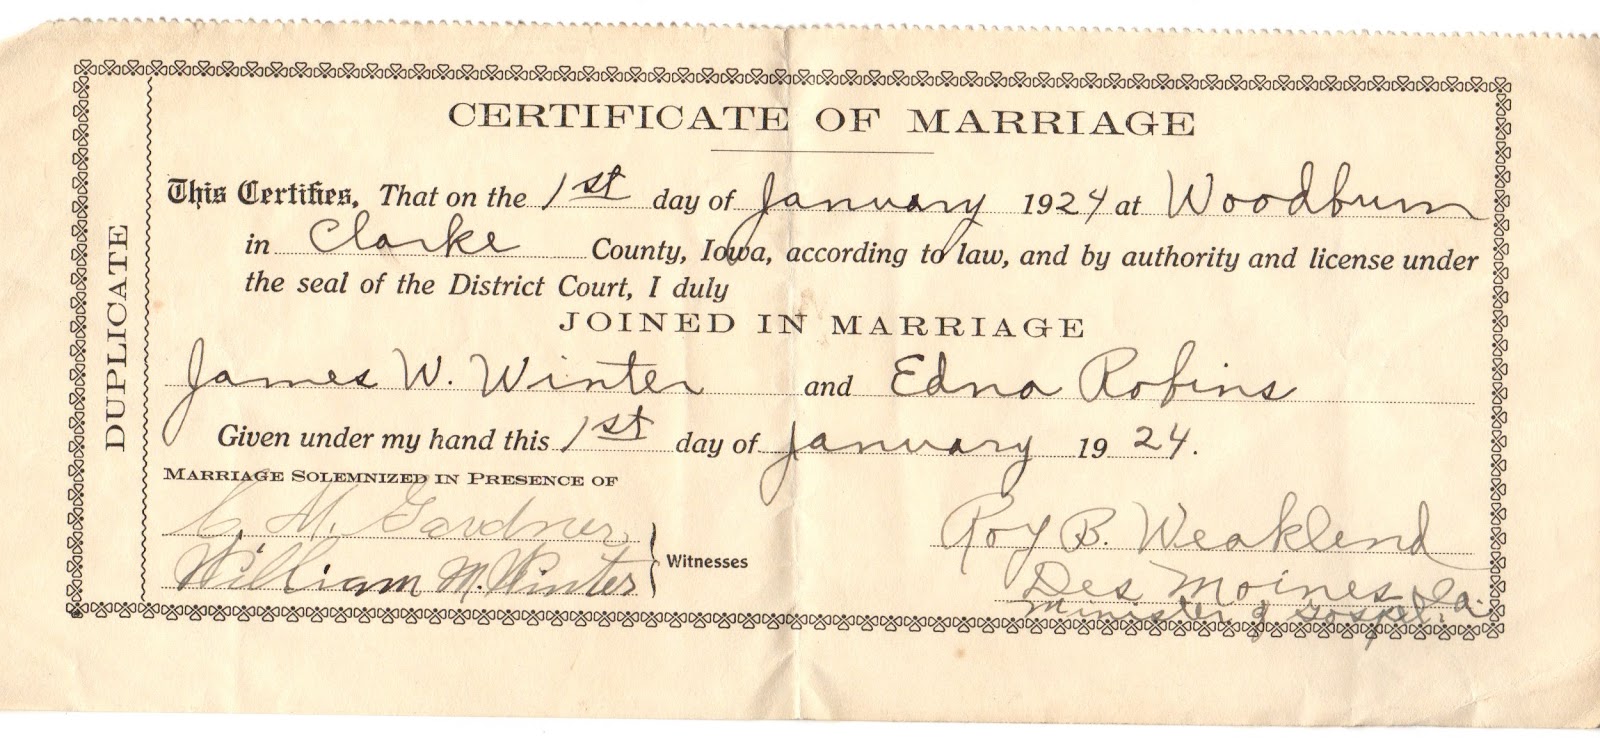 CERTIFICATE OF MARRIAGE
DUPLICATE
This Certifies, That on the 1st day of January 1924 at Woodburn
in Clarke County, Iowa, according to law, and by authority and license under
the seal of the District Court, I duly
JOINED IN MARRIAGE
James W. Winter and Edna Robins
Given under my hand this 1st day of January 1924.
MARRIAGE SOLEMNIZED IN PRESENCE OF
C. M. Gardner
William M. Winter
Witnesses
Roy B. Weaklend
Des Moines, Ia.
Minister of Gospel.